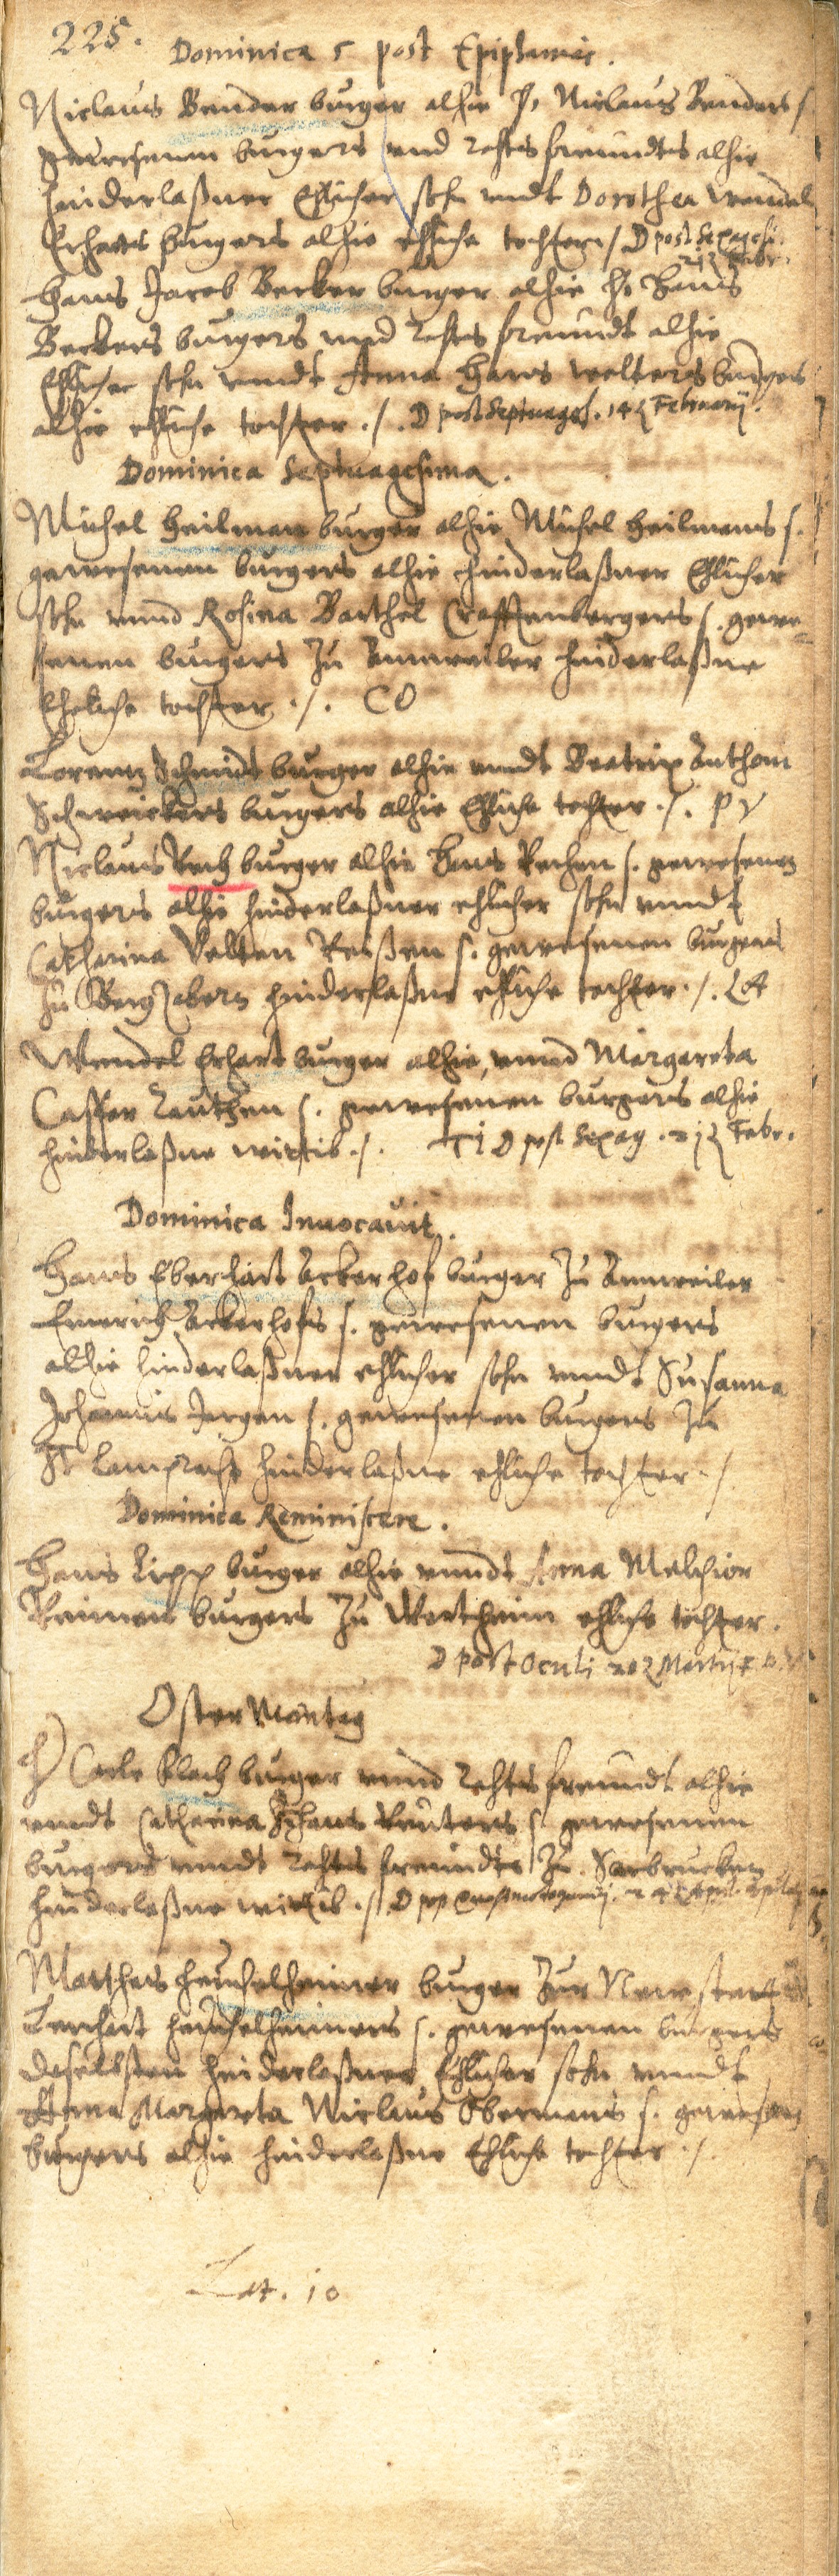 225.
Dominica 5 post Epiphaniæ.
Niclaus Bender burger alhie H. Niclaus Benders s.
gewesenen burgers vnd rahtsfreundts alhie
hinderlaßner Ehlicher sohn vndt Dorothea Wendel
Erharts burgers alhie ehliche tochter ./. D post Sexages.
Febr.
Hans Jacob Becker burger alhie H. Hans
Beckers burgers vnd rahtsfreundt alhie
Ehlicher sohn vnndt Anna Hans welters burgers
alhie ehliche tochter ./. D post Septuages. 14 Februarij.
Dominica Septuagesima.
Michel Heilman burger alhie Michel Heilmans s.
gewesenen burgers alhie hinderlaßner Ehlicher
sohn vnnd Rosina Barthel Craffenbergers s. gewe=
senen burgers zu Annweiler hinderlaßne
Eheliche tochter ./. CO
Lorentz Schmidt burger alhie vnndt Beatrix Anthoni
Schweickers burgers alhie Ehliche tochter ./.
Niclaus Rech burger alhie Hans Rechen s. gewesenen
burgers alhie hinderlaßner ehlicher sohn vnndt
Catharina Velten Reißen s. gewesenen burgers
zu BergZabern hinderlaßne ehliche tochter ./.
Wendel Erhart burger alhie, vnnd Margareta
Casper Lauthen s. gewesenen burgers alhie
hinderlaßne wittib ./. D post Sexag. Febr.
Dominica Inuocauit.
Hans Eberhart Ackerhof burger zu Annweiler
Emerich Ackerhofs s. gewesenen burgers
alhie hinderlaßner ehlicher sohn vnndt Susanna
Johannis Jergen s. gewesenen burgers zu
St Lamprecht hinderlaßne ehliche tochter ./.
Dominica Reminiscere.
Hans Lipp burger alhie vnndt Anna Melchior
burgers zu ehliche tochter.
D post Oculi Martij
Oster Montag
H Carle Bloch burger vnnd rahtsfreundt alhie
vnndt Catharina Hans Reuters s. gewesenen
burgers vnndt rahtsfreundts zu Sarbrucken
hinderlaßne wittib ./. D post
Matthes Heuchelheimer burger zur Newstatt
Lenhart Heuchelheimers s. gewesenen burgers
daselbsten hinderlaßner Ehlicher sohn vnndt
Anna Margreta Niclaus Obermans s. gewesenen
burgers alhie hinderlaßne Ehliche tochter ./.
Lat. 10